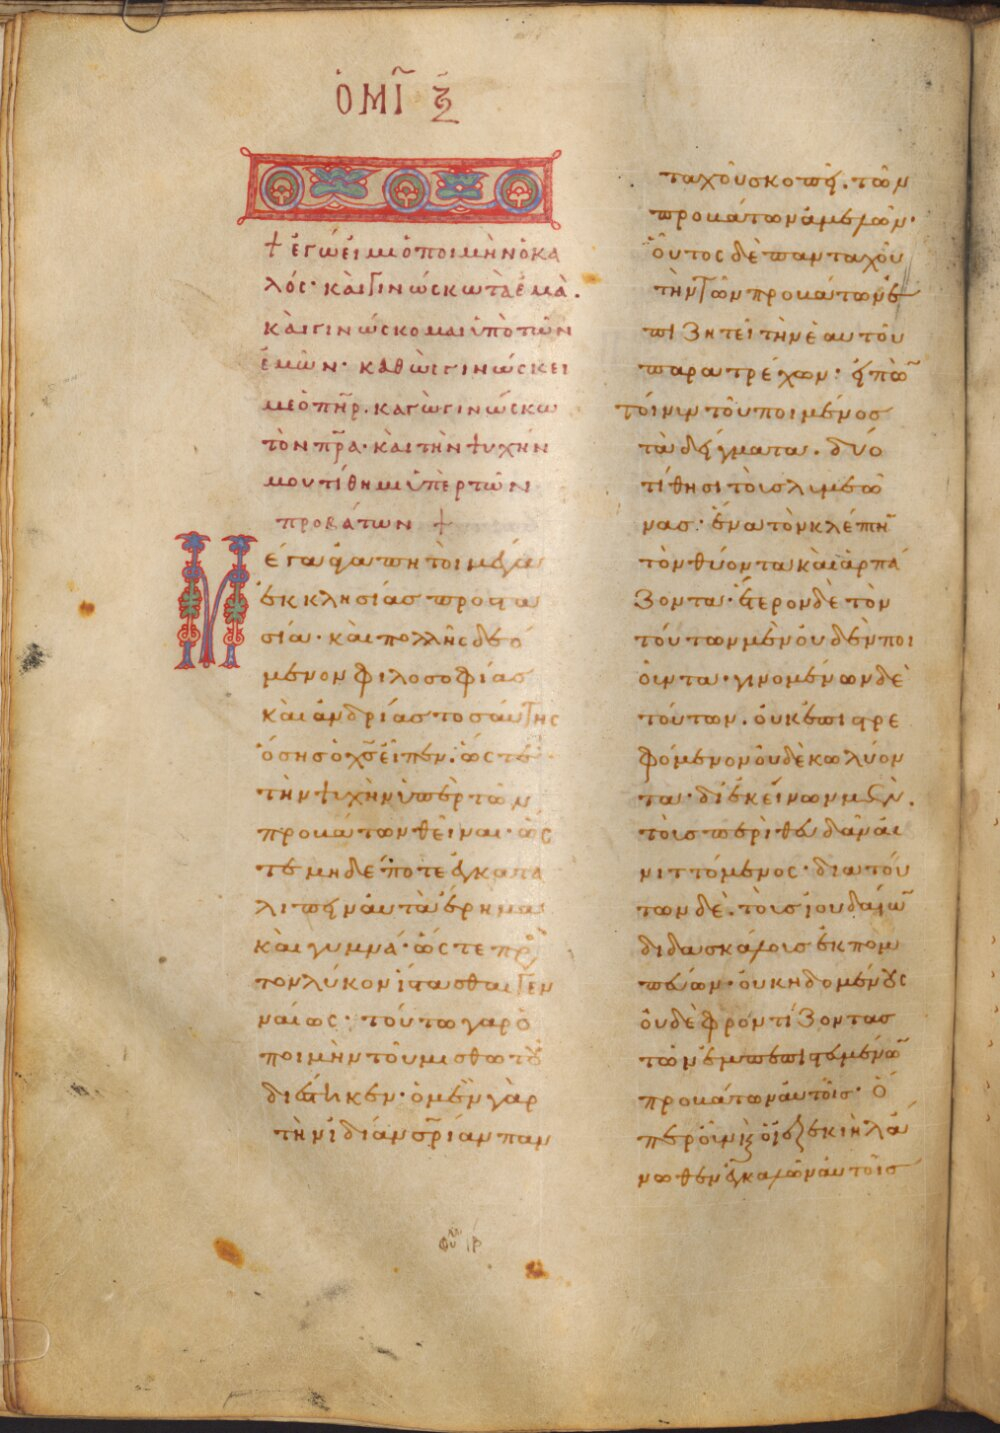 ὉΜΙ̃ ξ
† ἐγώ εἰμι ὁ ποιμὴν ὁ κα
λός· καὶ γινώσκω τὰ ἐμὰ.
καὶ γινώσκομαι ὑπὸ τῶν
ἐμῶν· καθὼς γινώσκει
με ὁ πη̃ρ. καγὼ γινώσκω
τὸν πρ̃α· καὶ τὴν ψυχήν
μου τίθημι ὑπὲρ τῶν
προβάτων †
Μέγα ἀγαπητοὶ μέγα
ἐκκλησίας προστα
σία· καὶ πολλῆς δεό
μενον φιλοσοφίας
καὶ ἀνδρίας τοσαύτης
ὅσης ὁ χς̃ εἶπεν. ὥστε
τὴν ψυχὴν ὑπὲρ τῶν
προβάτων θεῖναι· ὥς
τε μηδέποτε ἐγκατα
λιπεῖν αὐτὰ ἔρημα
καὶ γυμνά· ὥστε πρὸ
τὸν λύκον ἵστασθαι γεν
ναίως· τούτω γὰρ ὁ
ποιμὴν τοῦ μισθωτοῦ
διέστηκεν· ὁ μὲν γὰρ
τὴν ἰδίαν σρ̃ίαν παν
ταχοῦ σκοπεῖ. τῶν
προβάτων ἀμελῶν·
οὗτος δὲ πανταχοῦ
τὴν τῶν προβάτων ἐ
πιζητεῖ τὴν ἑαυτοῦ
παρατρέχων· εἰπὼ̃
τοίνυν τοῦ ποιμένος
τὰ δείγματα. δύο
τίθησι τοῖς λυμεῶ
νας· ἕνα τὸν κλέπτη̃
τὸν θύοντα καὶ ἁρπά
ζοντα· ἕτερον δὲ τὸν
τούτων μὲν οὐδὲν ποι
οῦντα· γινομένων δὲ
τούτων. οὐκ ἐπιστρε
φόμενον οὐδὲ κωλύον
τα· δι' ἐκείνων μὲν.
τοὺς περὶ θευδᾶν αἰ
νιττόμενος· διὰ τού
των δὲ. τοὺς ἰουδαίω̃
διδασκάλους ἐκπομ
πεύων· οὐ κηδομένους
οὐδὲ φροντίζοντας
τῶν ἐμπεπιστευμένω̃
προβάτων αὐτοῖς· ὅ
περ οὖν καὶ ὁ ἰεζεκιὴλ ἄ
νωθεν ἐγκαλῶν αὐτοῖς